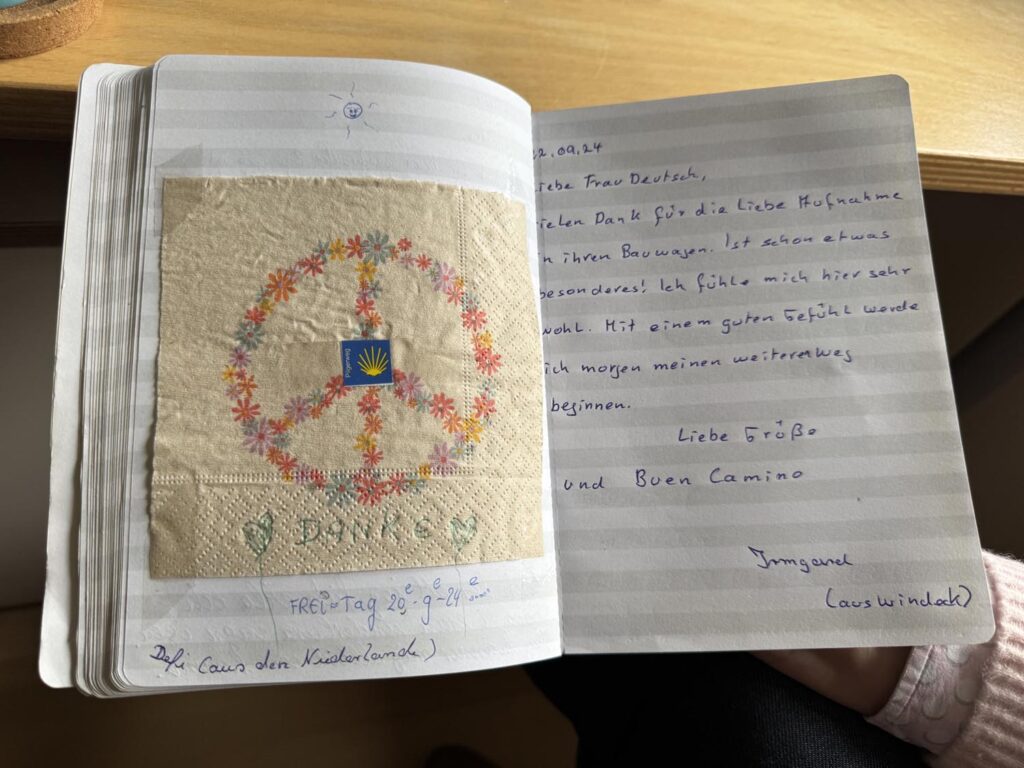 Pilgerweg
DANKE
FREI=Tag 20e-9e-24e
(aus den Niederlande)
22.09.24
Liebe Frau Deutsch,
Vielen Dank für die liebe Aufnahme
in ihren Bauwagen. Ist schon etwas
besonderes! Ich fühle mich hier sehr
wohl. Mit einem guten Gefühl werde
ich morgen meinen weiteren Weg
beginnen.
Liebe Grüße
und Buen Camino
Irmgard
(aus Windeck)